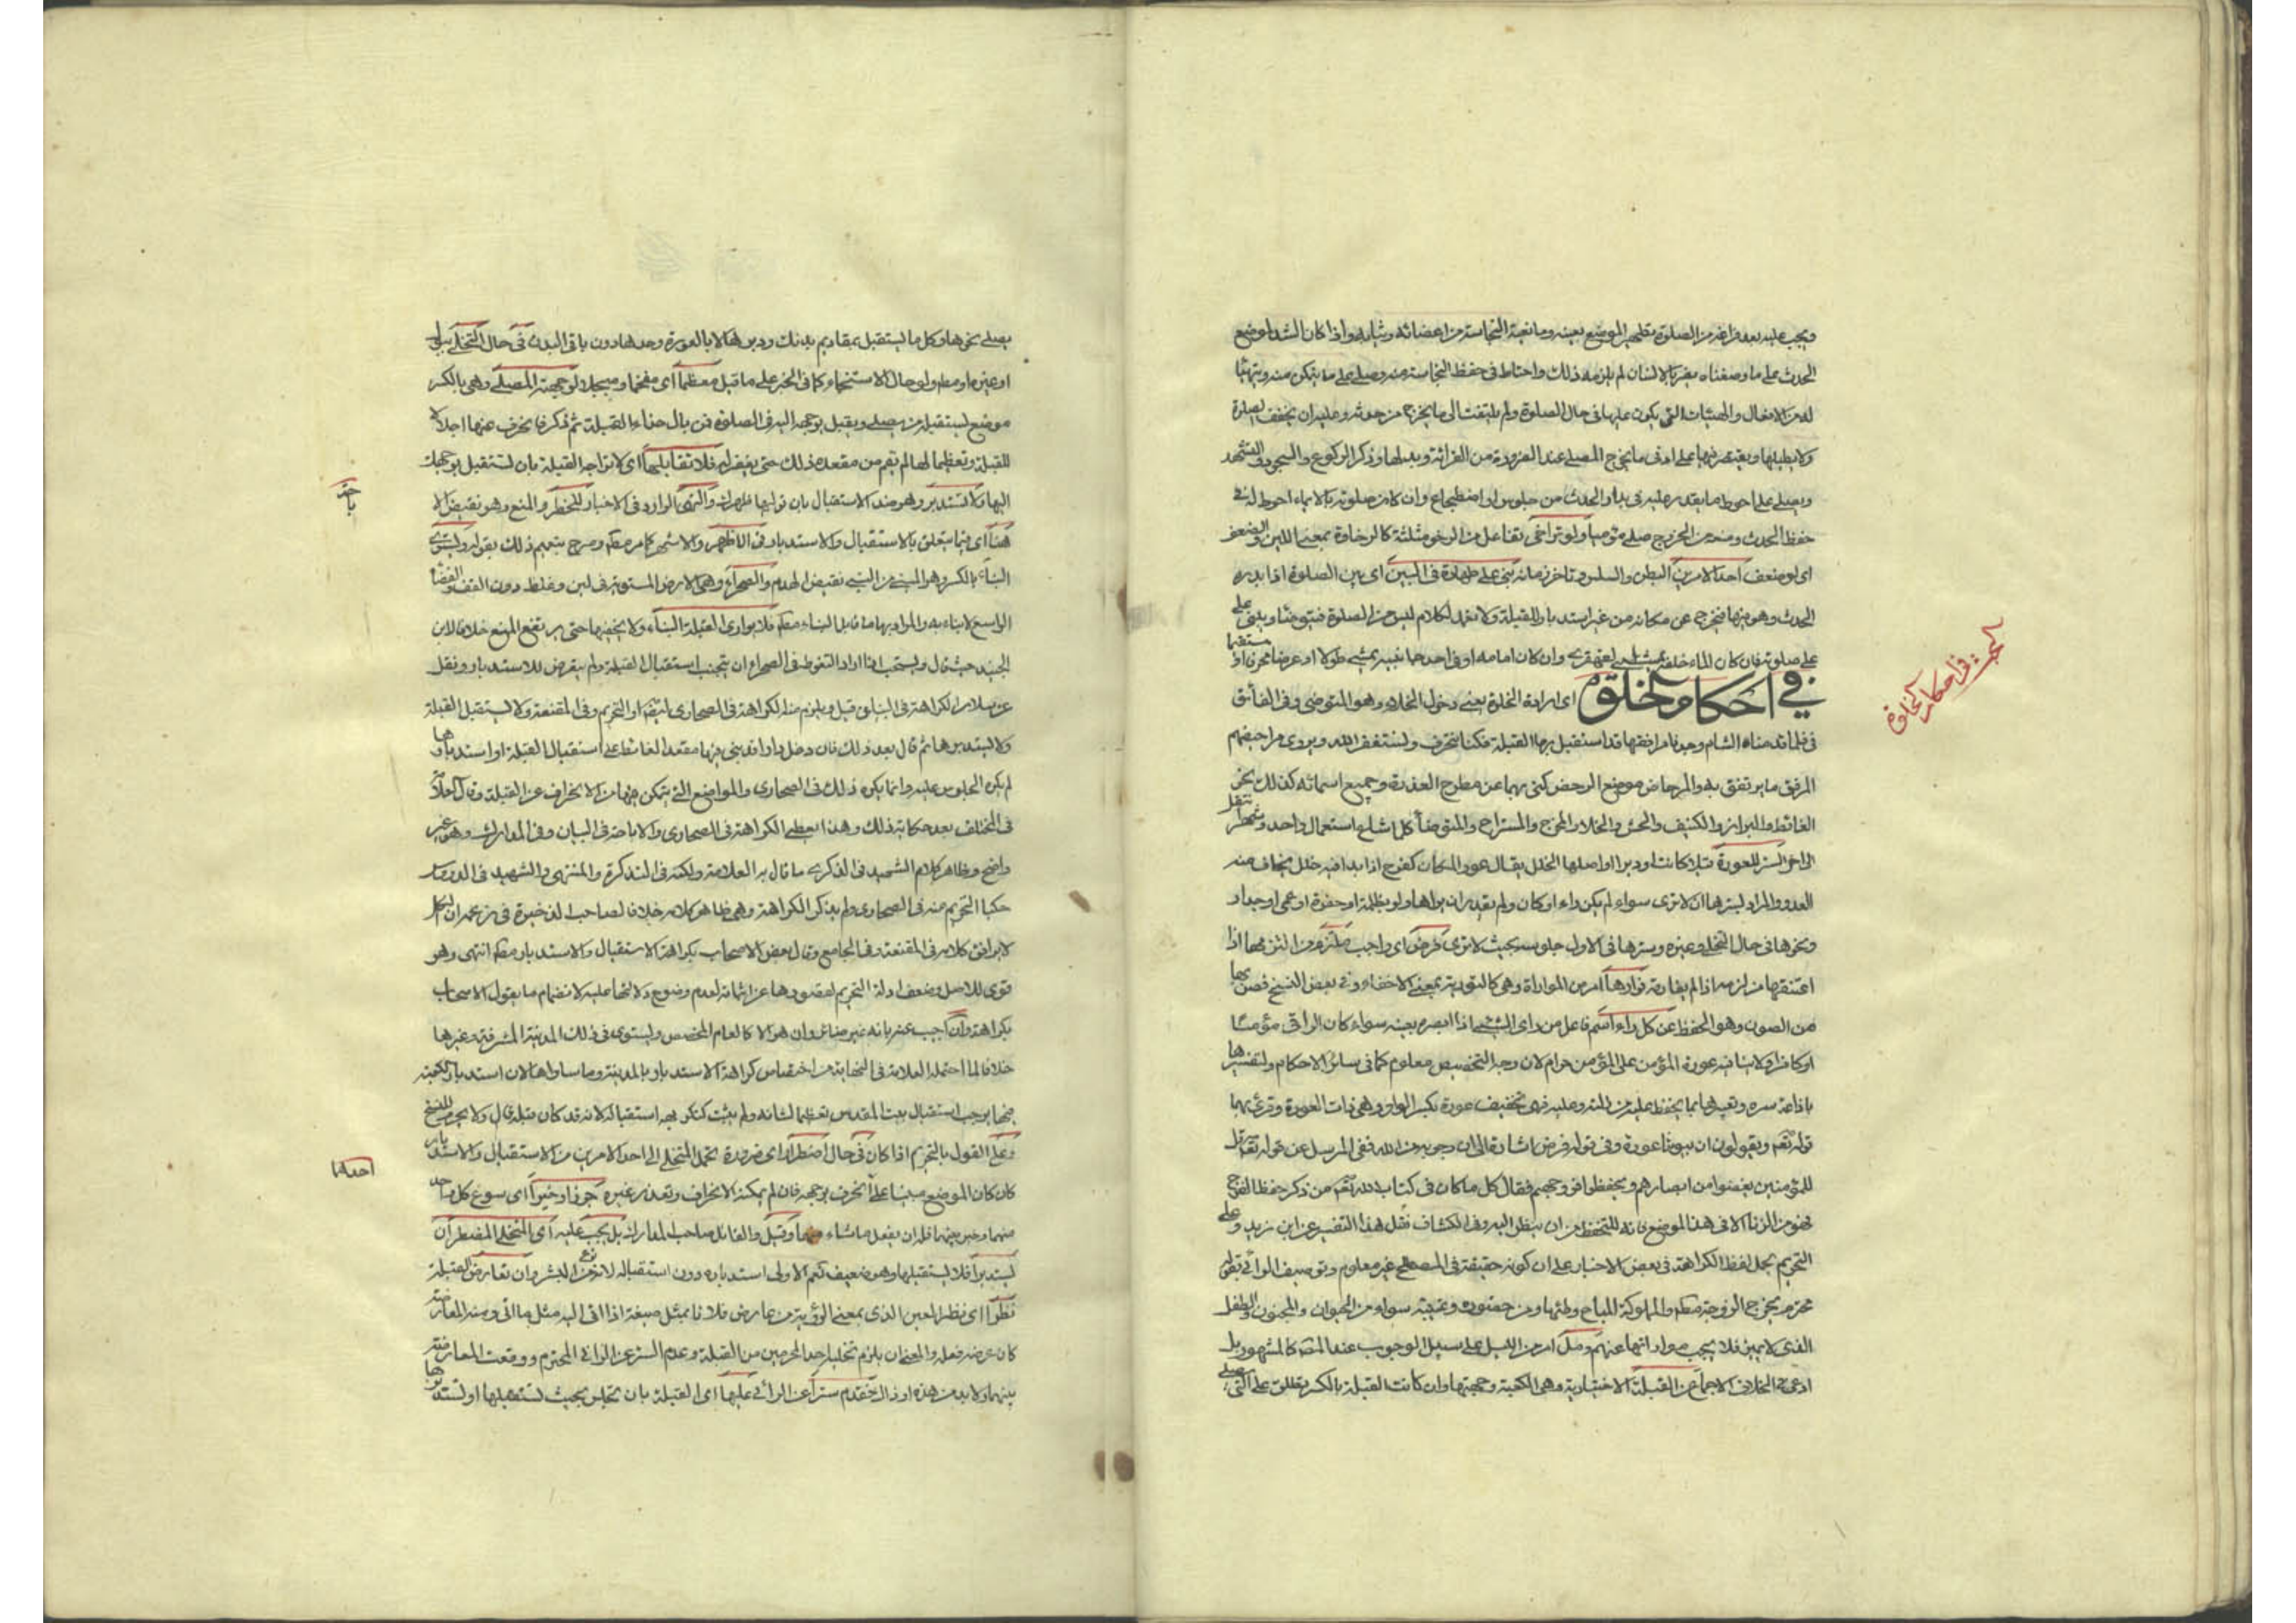 ويجب عليه بعد فراغه من الصلوة تطهير الموضع بعينه وما نعته النجاسة من اعضائه وثيابه واذا كان الشد لموضع
الحدث على ما وصفناه يضر بالانسان لم يلزمه ذلك واحتاط في حفظ النجاسة منه وصلى على ما يتمكن منه ويتهيأ
له من الافعال والهيئات التي يكون عليها في حال الصلوة ولم يلتفت الى ما يخرج من حدثه وعليه ان يخفف الصلوة
ولا يطيلها ويقتصر فيها على ادنى ما يخرج المصلي عند الضرورة من القرائة وبدلها وذكر الركوع والسجود والتشهد
ويصلي على احوط ما يقدر عليه في بدار الحدث من جلوس او اضطجاع وان كان صلوته بالايماء احوط له في
حفظ الحدث ومنعه من الخروج صلى مؤميا ولو تراخى تفاعل من الرخو مثلثة كالرخاوة بمعنى اللين والضعف
اى لو ضعف احد الامرين البطن والسلس وتاخر زمانه بنى على طهارة في البين اى بين الصلوة اذا بدره
الحدث وهو فيها فيخرج عن مكانه من غير استدبار للقبلة ولا تعمد لكلام ليس من الصلوة فيتوضأ ويبنى على
على صلوته فان كان الماء خلفه يمشي اليه القهقرى وان كان امامه او في احد جانبيه يمشي طولا او عرضا منحرفا او مستقيما
في احكام الخلوة اى ارادة الخلوة يعني دخول الخلاء وهو المتوضى وفي الفائق
في فلما قدمنا الشام وجدنا مرافقها قد استقبل بها القبلة فكنا ننحرف ونستغفر الله ويروى مراحيضهم
المرفق ما يرتفق به والمرحاض موضع الرحض كنى بهما عن مطرح العذرة وجميع اسمائه كذلك نحو
الغائط والبراز والكنيف والحش والخلاء والمخرج والمستراح والمتوضأ كلما شاع استعمال واحد وشهر انتقل
الى اخر الستر للعورة قبلا كانت او دبرا واصلها الخلل يقال عور المكان كفرح اذا بدا فيه خلل يخاف منه
العدو والمراد بسترها ان لا ترى سواء لم يكن راء او كان ولم يقدر ان يراها ولو بظلمة او حفرة او عمى او جدار
ونحوها في حال التخلي وغيره وسترها في الاول جلوسه بحيث لا ترى فرض اى واجب ملتزم من التزمها اذا
اعتنقها من لزمه اذا لم يفارقه فوارها امر من المواراة وهي كالتورية بمعنى الاخفاء وفي بعض النسخ فصنها
من الصون وهو الحفظ عن كل راء اسم فاعل من راى الشيء اذا ابصره بعينه سواء كان الرائي مؤمنا
او كافرا ولا ينافيه عورة المؤمن على المؤمن حرام لان وجه التخصيص معلوم كما في سائر الاحكام وتفسيرها
باذاعة سره وتعييبها بما يحفظ عليه من ذلته وعليه فهي تخفيف عورة بكسر الواو وهي ذات العورة وقرئ بهما
قوله تعم ويقولون ان بيوتنا عورة وفي قوله فرض اشارة الى ان وجوبه من الله ففي المرسل عن قوله تعم قل
للمؤمنين يغضوا من ابصارهم ويحفظوا فروجهم فقال كل ما كان في كتاب الله تعم من ذكر حفظ الفرج
فهو من الزنا الا في هذا الموضع فانه للتحفظ من ان ينظر اليه وفي الكشاف نقل هذا التفسير عن ابن زيد وعلى
التحريم يحمل لفظ الكراهة في بعض الاخبار على ان كونه حقيقة في المصطلح غير معلوم وتوصيف الرائي بقوله
محترم يخرج الزوجة مطم والمملوكة المباح وطئها ومن حضوره وغيبته سواء من الحيوان والمجنون والطفل
الذى لا يميز فلا يجب مواراتها عنهم ومل امر من الميل على سبيل الوجوب عند المصَ كالمشهور بل
ادعى في الخلاف الاجماع عن القبلة الاختيارية وهي الكعبة وجهتها وان كانت القبلة بالكسر يطلق على التي يصلى
البحث في احكام الخلوة
يصلى نحوها وكل ما يستقبل بمقاديم بدنك ودبرها لا بالعورة وحدها دون باقى البدن في حال التخلى ببول
او غيره او مطم ولو حال الاستنجاء كما في الخبر على ما قيل معظما اى مفخما ومبجلا لوجهة المصلى وهي بالكسر
موضع يستقبله من يصلى ويقبل بوجهه اليه في الصلوة فمن بال حذاء القبلة ثم ذكر فانحرف عنها اجلالا
للقبلة وتعظيما لها لم يقم من مقعده ذلك حتى يغفر له فلا تقابلها اى لا تواجه القبلة بان تستقبل بوجهك
اليها ولا تستدبر وهو ضد الاستقبال بان توليها ظهرك والنهى الوارد في الاخبار للحظر والمنع وهو نقيض الا
باحة
هنا اى فيما يتعلق بالاستقبال والاستدبار في الاظهر والاشهر كما مر مطم وصرح بتعميم ذلك بقوله ويستوى
البناء بالكسر وهو المبنى من البنى نقيض الهدم والصحراء وهي الارض المستوية في لين وغلظ دون القف والفضاء
الواسع لا بناء به والمراد بها ما قابل البناء مطم فلا يوارى القبلة البناء ولا يخفيها حتى يرتفع المنع خلافا لابن
الجنيد حيث قال ويستحب اذا اراد التغوط في الصحراء ان يتجنب استقبال القبلة ولم يتعرض للاستدبار ونقل
عن سلار الكراهة في البنيان قيل ويلزم منه الكراهة في الصحارى ايضا او التحريم وفي المقنعة ولا يستقبل القبلة
ولا يستدبرها ثم قال بعد ذلك فان دخل دارا قد بنى فيها مقعد الغائط على استقبال القبلة او استدبارها
لم يكره الجلوس عليه وانما يكره ذلك في الصحارى والمواضع التي يتمكن فيها من الانحراف عن القبلة وقال العلامة
في المختلف بعد حكاية ذلك وهذا يعطى الكراهة في الصحارى والاباحة في البنيان وفي المدارك وهو غير
واضح وظاهر كلام الشهيد في الذكرى ما قال به العلامة ولكنه في التذكرة والمنتهى والشهيد في الدروس
حكيا التحريم منه في الصحارى ولم يذكر الكراهة وهي ظاهر كلامه خلافا لصاحب الذخيرة في زعمه ان الكل
لا يوافق كلامه في المقنعة وفي الجامع وقال بعض الاصحاب بكراهة الاستقبال والاستدبار مطم انتهى وهو
قوى للاصل وضعف ادلة التحريم لقصورها عن اثباته لعدم وضوح دلالتها عليه لانضمام ما يقول الاصحاب
بكراهته وان اجيب عنه بانه غير ضائر وان هو الا كالعام المخصص ويستوى في ذلك المدينة المشرفة وغيرها
خلافا لما احتمله العلامة في النهاية من اختصاص كراهة الاستدبار بالمدينة وما ساواها لان استدبار الكعبة
فيها يوجب استقبال بيت المقدس تعظيما لشانه ولم يثبت كنكر بعد استقباله لانه قد كان قبله قال ولا يحرم للنسخ
وعلى القول بالتحريم اذا كان في حال اضطرار اى ضرورة تحمل المتخلى الى احد الامرين من الاستقبال والاستدبار
احدهما
كان كان الموضع مبنيا على انحرف بوجهه فان لم يمكنه الانحراف وتعذر غيره جوزا وخيرا اى سوغ كل واحد
منهما وخير بينهما فله ان يفعل ما شاء منهما وقيل والقائل صاحب المدارك بل يجب عليه اى المتخلى المضطر ان
يستدبر فلا يستقبلها وهو ضعيف نعم الاولى استدباره دون استقباله لانه نوع من البشر وان تعارض القبلة
نظرا اى نظر العين الذى بمعنى الرؤية من عارض فلانا بمثل صنيعه اذا اتى اليه مثل ما اتى ومنه المعارضة
كان عرض فعله والمعنى ان يلزم تخليا احد المحرمين من القبلة وعدم الستر عن الرائي المحترم ووقعت المعارضة
بينهما ولا بد من هذه او ذاك فقدم سترا عن الرائي عليها اى القبلة بان تجلس بحيث تستقبلها او تستدبرها